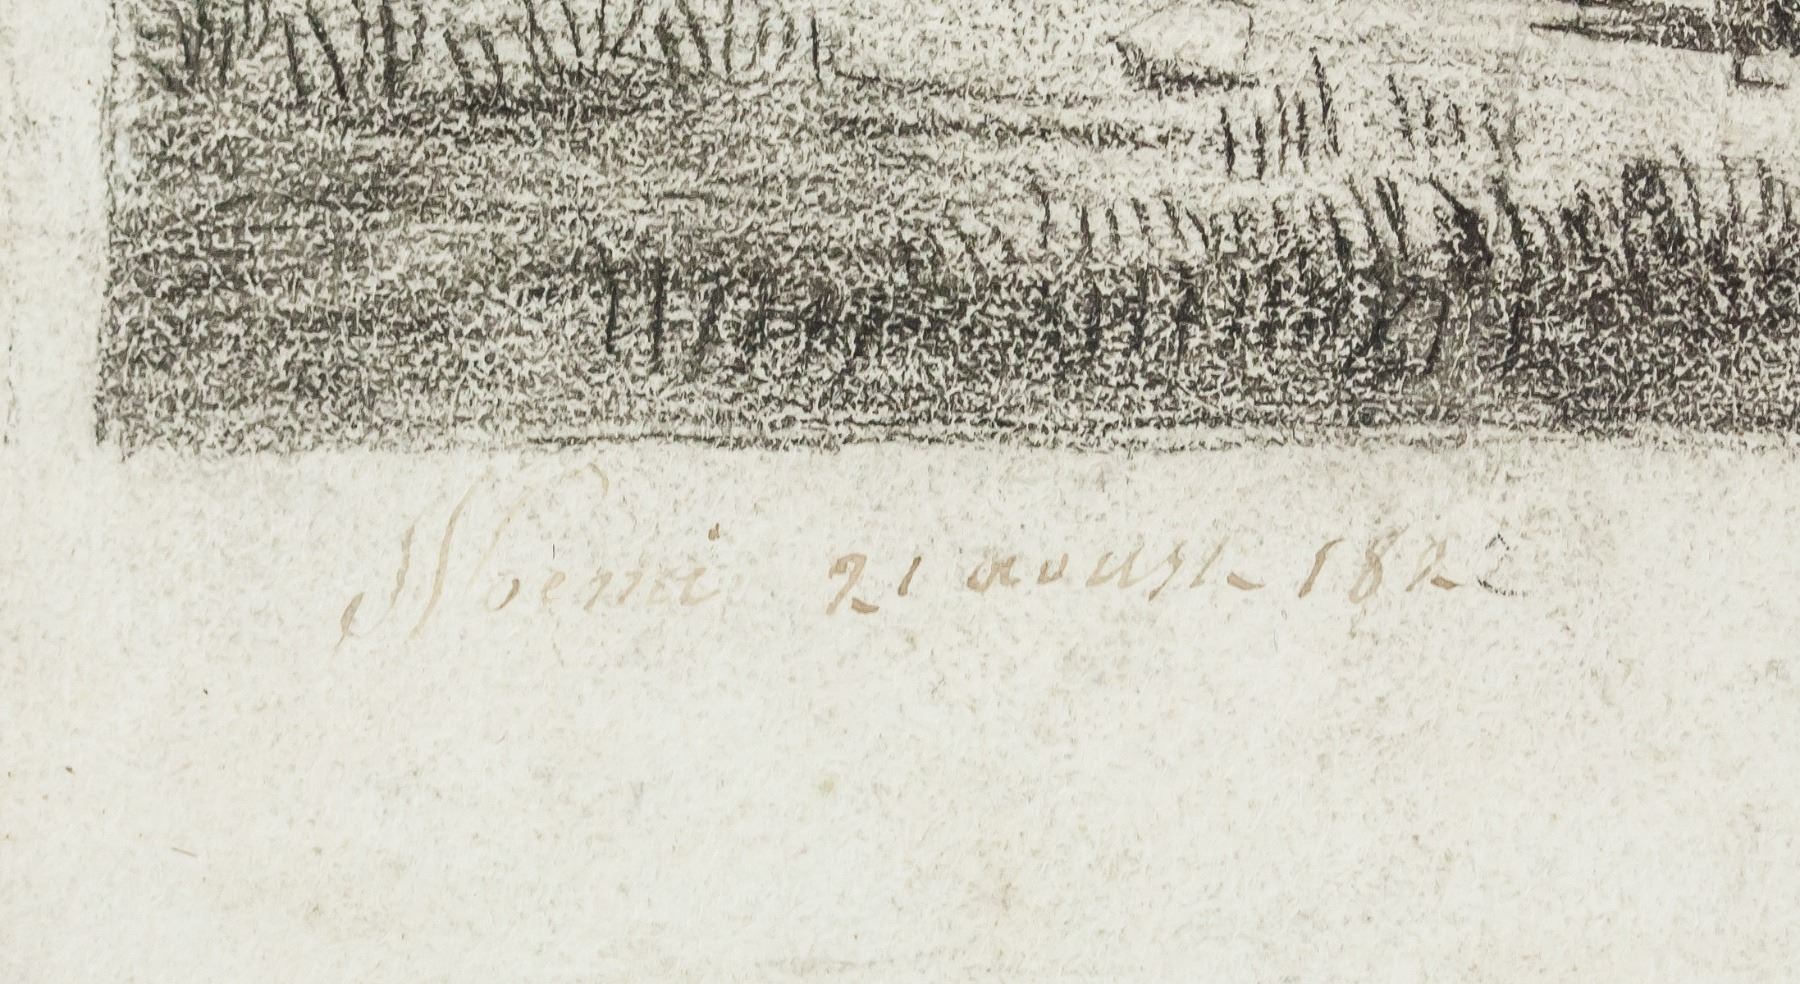 Noemi 21 aoust 1822